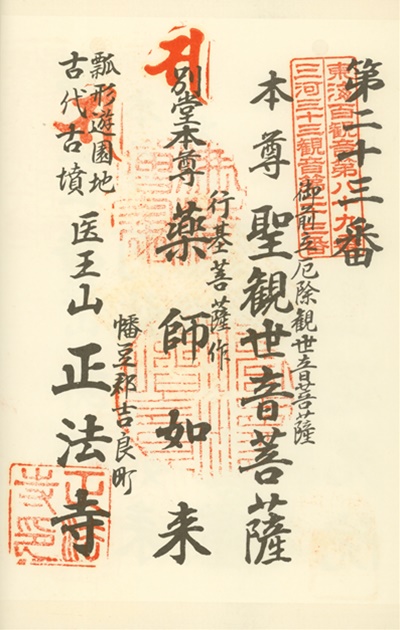 第二十三番
東海百観音第八十九番
三河三十三観音第二十三番
御前立厄除観世音菩薩
本尊 聖観世音菩薩
行基菩薩作
別堂本尊 薬師如来
幡豆郡吉良町
瓢形遊園地
古代古墳 医王山 正法寺